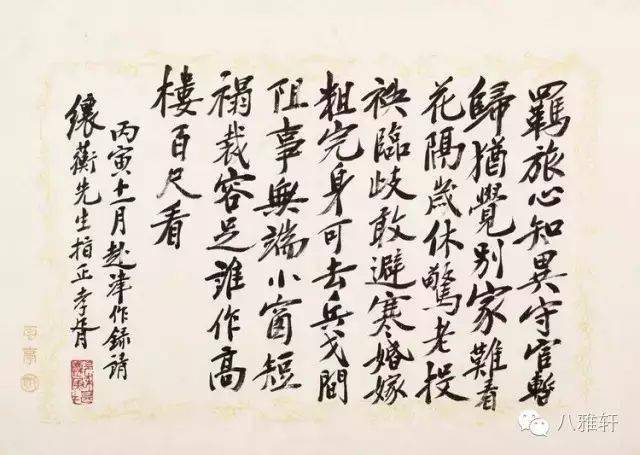 羈旅心知異守官暫
歸猶覺別家難看
花隔歲休驚老投
袂臨歧敢避寒婚嫁
粗完身可去兵戈間
阻事無端小窗短
榻裁容足誰作高
樓百尺看
丙寅十一月赴津作錄請
纕蘅先生指正孝胥
八雅轩